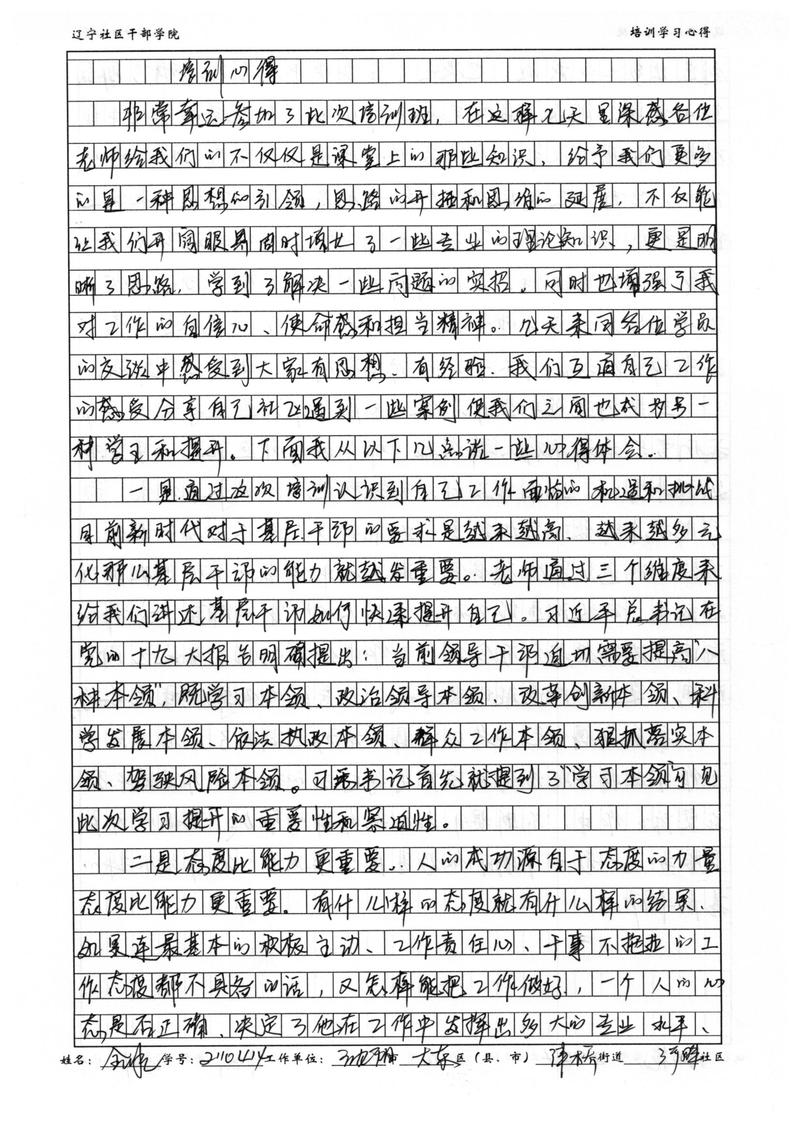 辽宁社区干部学院 培训学习心得
培训心得
非常幸运参加了此次培训班，在这样几天里深感各位
老师给我们的不仅仅是课堂上的那些知识，给予我们更多
的是一种思想的引领，思路的开拓和思维的延展，不仅能
让我们开阔眼界同时增长了一些专业的理论知识，更是明
晰了思路，学到了解决一些问题的实招。同时也增强了我
对工作的自信心、使命感和担当精神。几天来同各位学员
的交谈中感受到大家有思想、有经验、我们互通自己工作
的感受分享自己社区遇到一些案例使我们之间也成为另一
种学习和提升。下面我从以下几点谈一些心得体会.
一是通过这次培训认识到自己工作面临的机遇和挑战
目前新时代对于基层干部的要求是越来越高、越来越多元
化那么基层干部的能力就越发重要。老师通过三个维度来
给我们讲述基层干部如何快速提升自己。习近平总书记在
党的十九大报告明确提出：当前领导干部迫切需要提高“八
种本领”，既学习本领、政治领导本领、改革创新本领、科
学发展本领、依法执政本领、群众工作本领、狠抓落实本
领、驾驶风险本领。习书记首先就提到了“学习本领”可见
此次学习提升的重要性和紧迫性。
二是态度比能力更重要。人的成功源自于态度的力量
态度比能力更重要。有什么样的态度就有什么样的结果、
如果连最基本的积极主动、工作责任心、干事不拖拉的工
作态度都不具备的话，又怎样能把工作做好，一个人的心
态是否正确、决定了他在工作中发挥出多大的专业水平、
姓名： 学号：2110414 工作单位： 大东区（县、市） 津桥街道 社区